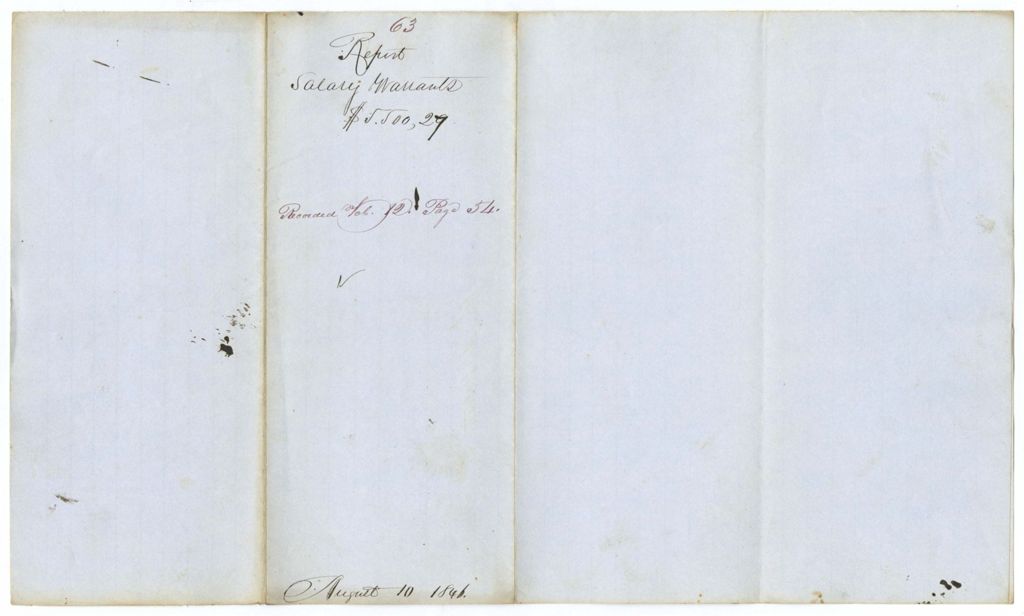 63
Report
Salary Warrants
$5.500,29
Recorded Vol. 12. Page 54.
August 10 1846.